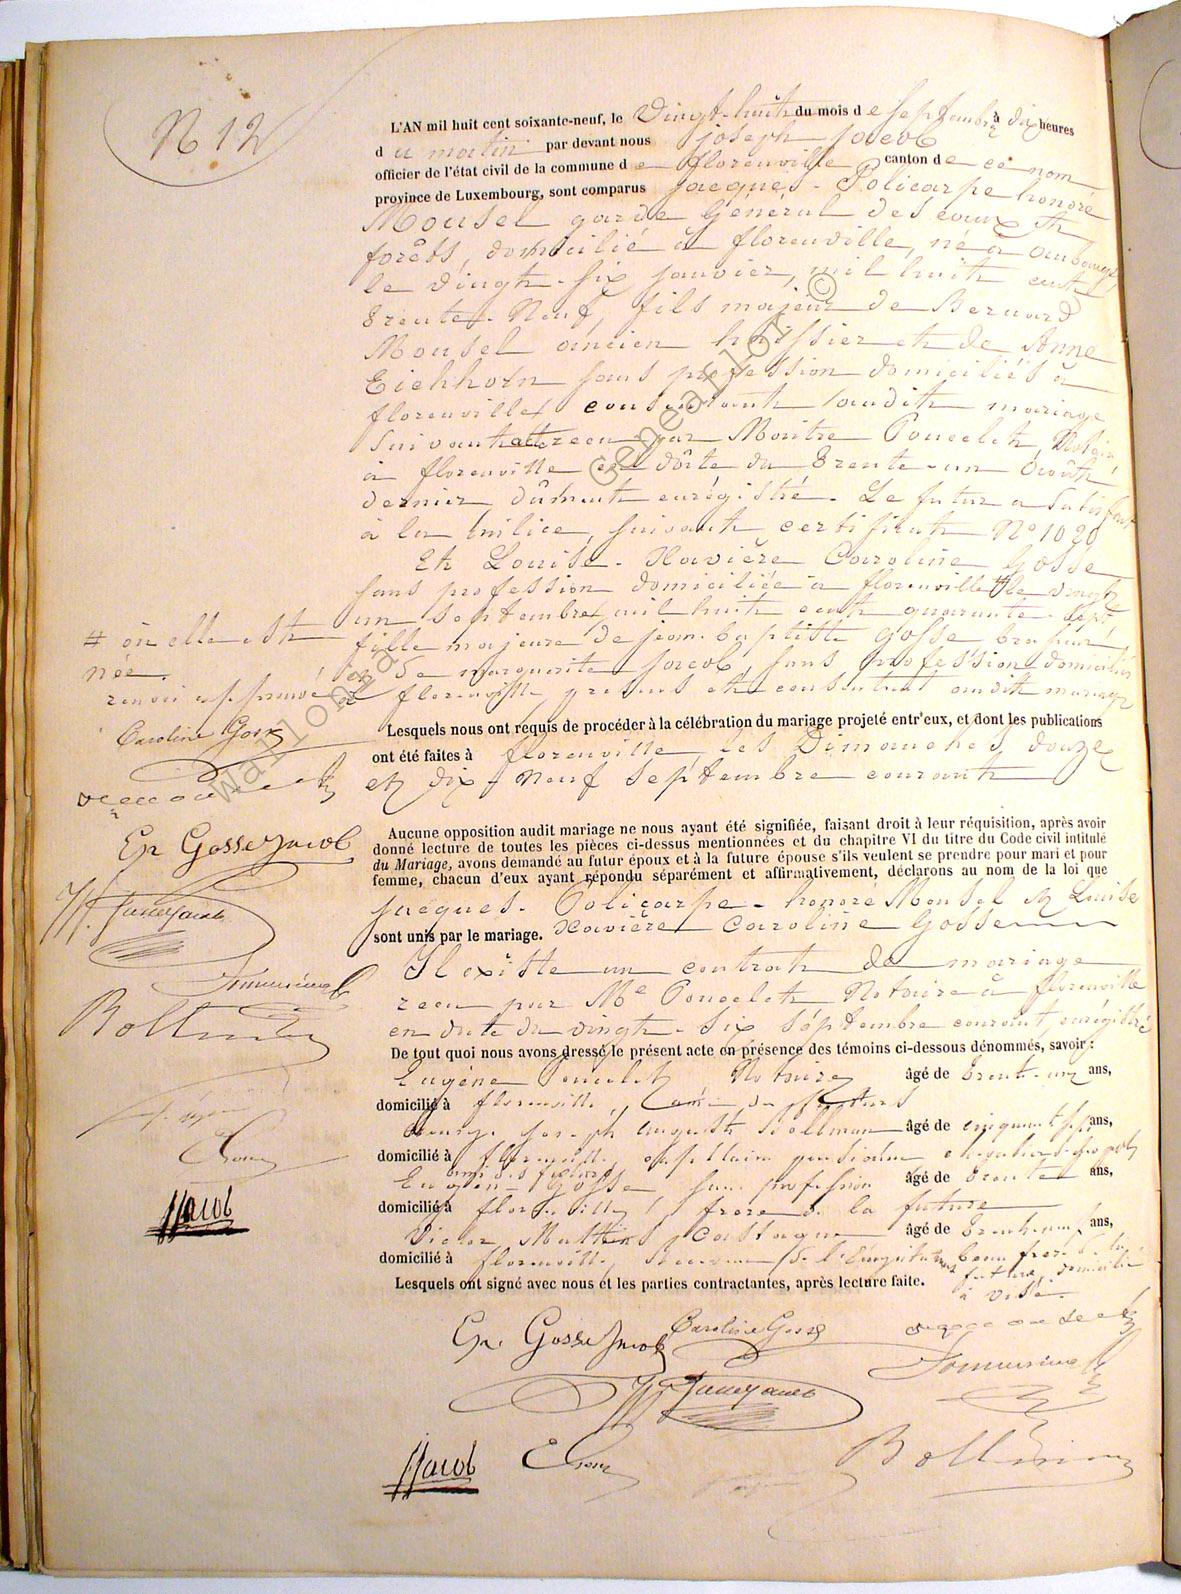 N 12
L'AN mil huit cent soixante-neuf, le vingt-huit du mois de septembre à dix heures
du matin par devant nous joseph jacob
officier de l'état civil de la commune de florenville canton de ce nom
province de Luxembourg, sont comparus jacques - Policarpe honoré
Mousel garde Général des eaux et
forêts, domicilié à florenville, né à
le vingt-six janvier, mil huit cent
trente-Neuf, fils majeur de Bernard
Mousel ancien huissier et de Anne
Eichhorn sans profession domiciliés à
florenville consentant audit mariage
suivant acte recu par Maitre Poncelet, Notaire
à florenville en dâte du trente-un âoûth
dernier, dûment enrégistré. Le futur a satisfait
à la milice, suivant certificat N° 1020
Et Louise - Xavière Caroline Gosse
sans profession domiciliée à florenville # le vingt
un septembre mil huit cent quarante-sept
fille majeure de jean-baptiste gosse brasseur
et de marguerite jacob, sans profession domiciliés
à florenville presents et consentant audit mariage
# où elle est
née.
renvoi approuvé
Caroline Gosse
Lesquels nous ont requis de procéder à la célébration du mariage projeté entr'eux, et dont les publications
ont été faites à florenville les Dimanches douze
et dix-neuf septembre courant
Ep Gosse Jacob
Aucune opposition audit mariage ne nous ayant été signifiée, faisant droit à leur réquisition, après avoir
donné lecture de toutes les pièces ci-dessus mentionnées et du chapitre VI du titre du Code civil intitulé
du Mariage, avons demandé au futur époux et à la future épouse s'ils veulent se prendre pour mari et pour
femme, chacun d'eux ayant répondu séparément et affirmativement, déclarons au nom de la loi que
jacques - Policarpe - honoré Mousel et Louise
sont unis par le mariage. Xavière Caroline Gosse
Il existe un contrat de mariage
recu par Me Poncelet Notaire à florenville
en date du vingt-six séptembre courant, enrégistré
De tout quoi nous avons dressé le présent acte en présence des témoins ci-dessous dénommés, savoir :
Eugène Poncelet Notaire âgé de trente-un ans,
domicilié à florenville, ami du futurs
joseph auguste Bollman âgé de cinquante sept ans,
domicilié à florenville,
ami des futurs
Eugène Gosse, sans profession âgé de trente ans,
domicilié à florenville, frere de la future
Victor Mathieu Castagne âgé de trente neuf ans,
domicilié à florenville, beau frere de la
future, domicilié
à
Lesquels ont signé avec nous et les parties contractantes, après lecture faite.
Jacob
Ep. Gosse Jacob
Caroline Gosse
Jacob
Wallonia © GeneaFlor